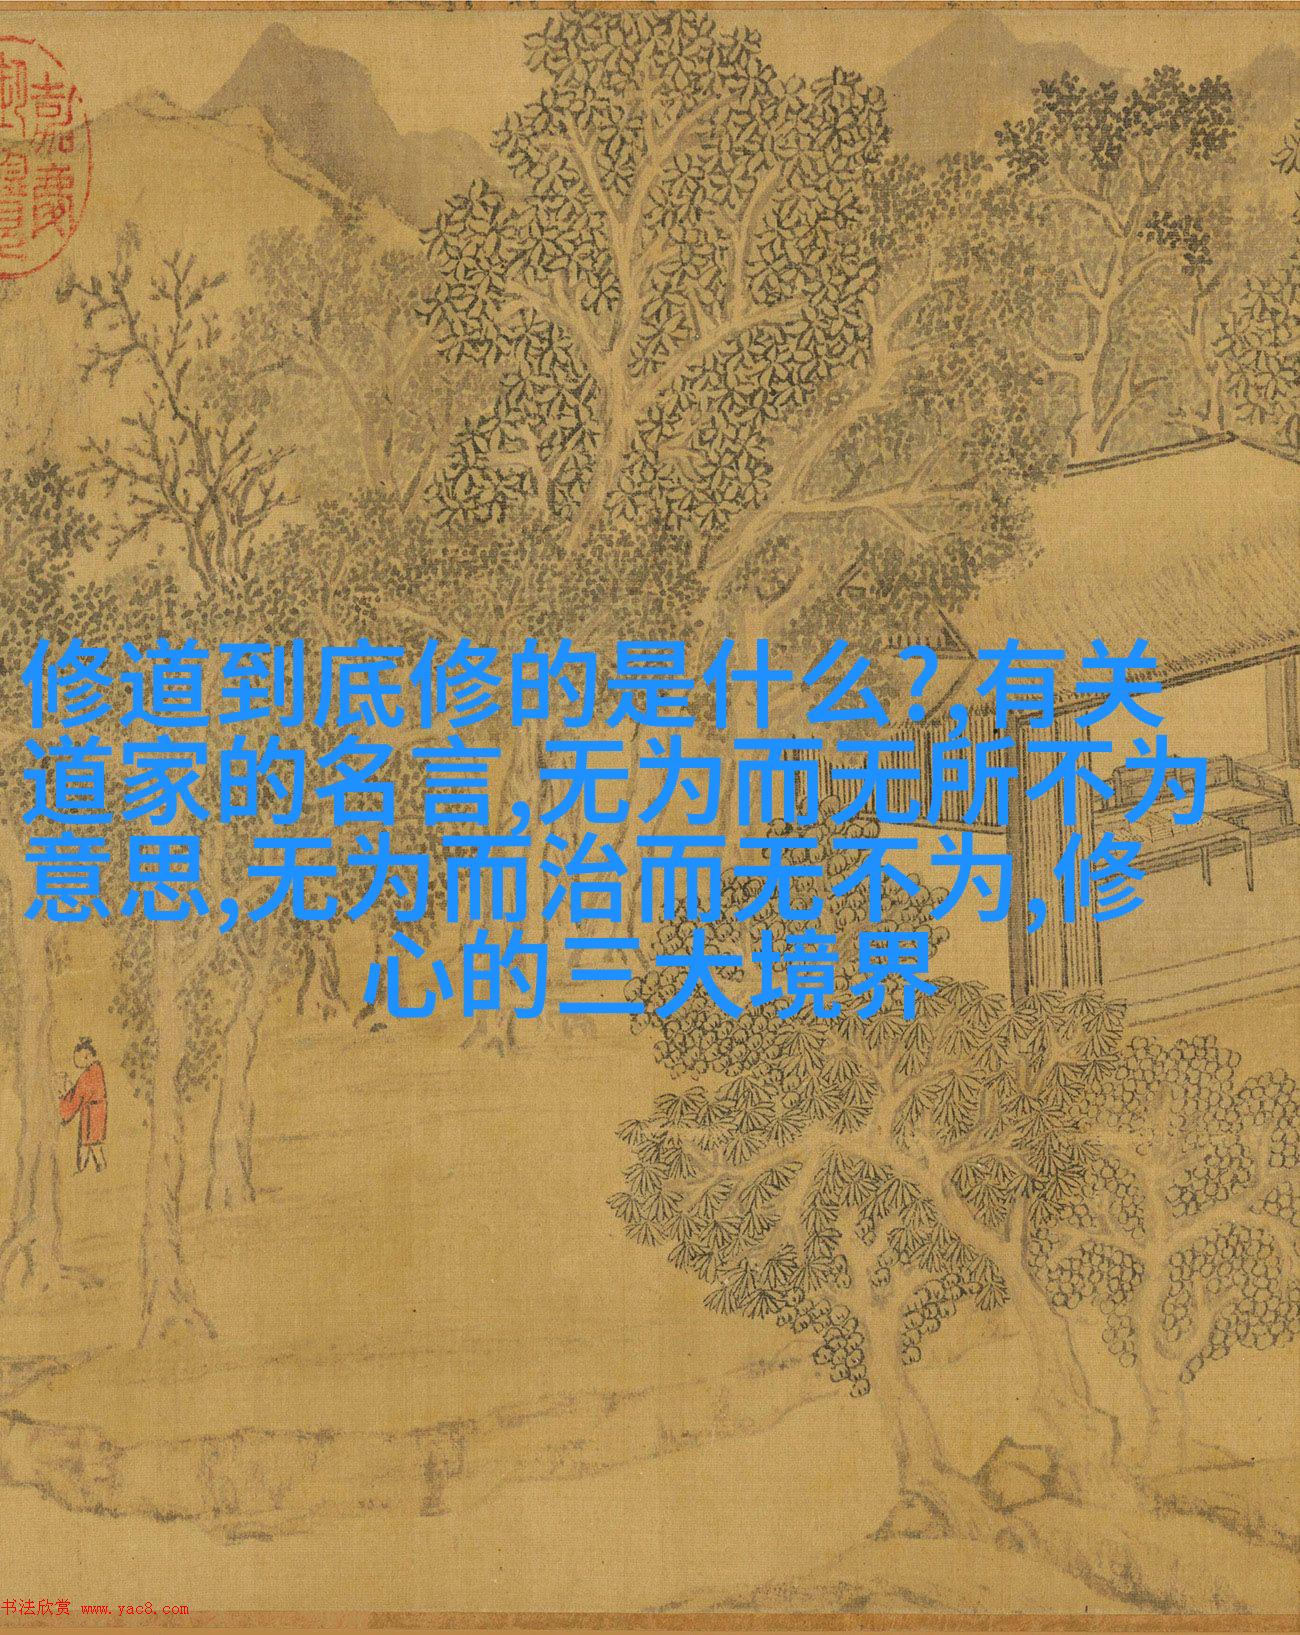 修道到底修的是什么?,有关
道家的名言,无为而无所不为
意思,无为而治而无不为,修
心的三大境界
书法欣赏 www.yac8.com